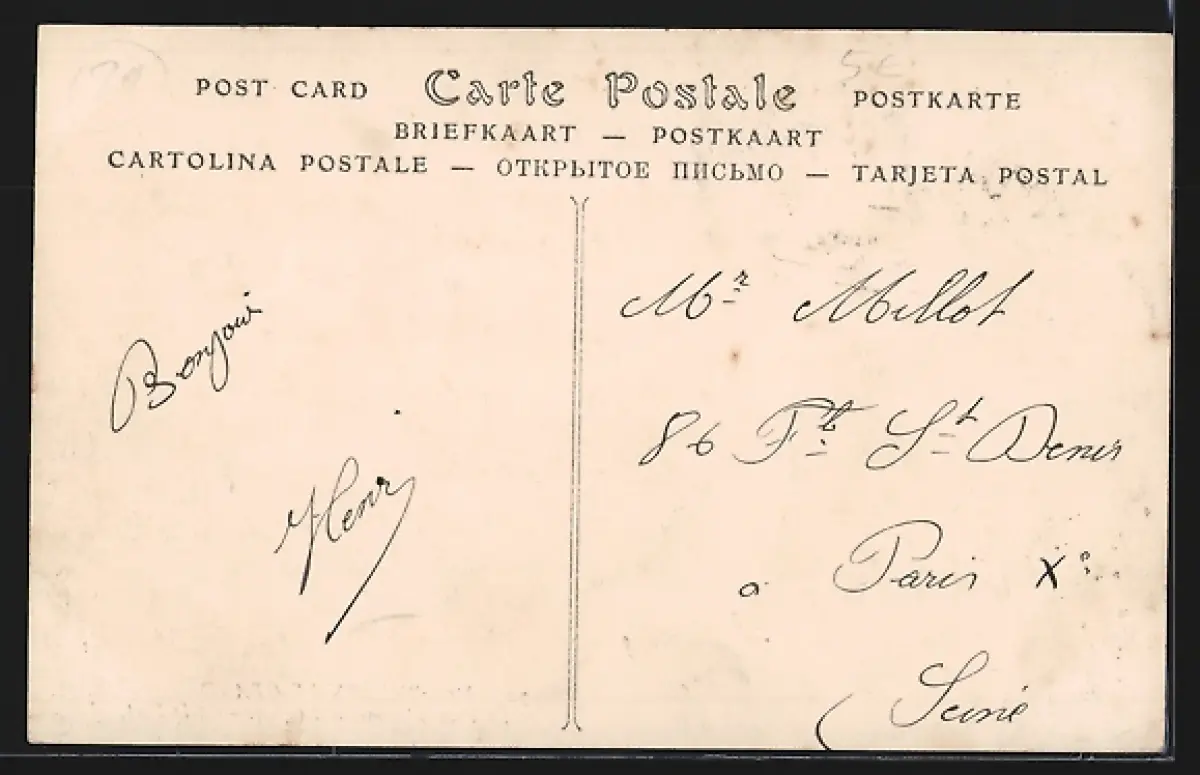 POST CARD Carte Postale POSTKARTE
BRIEFKAART — POSTKAART
CARTOLINA POSTALE — ОТКРЫТОЕ ПИСЬМО — TARJETA POSTAL
Bonjour
Henri
Mr Millot
86 Fb St Denis
à Paris Xe
Seine
5€